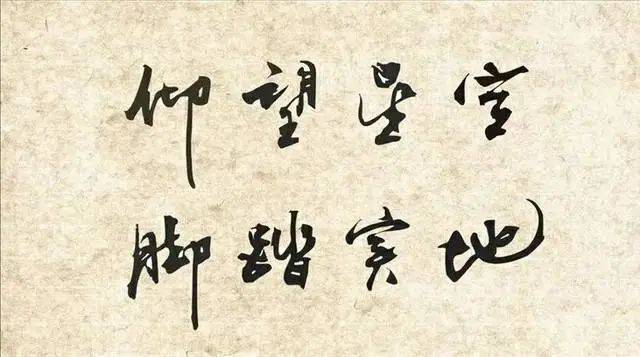 仰望星空
脚踏实地